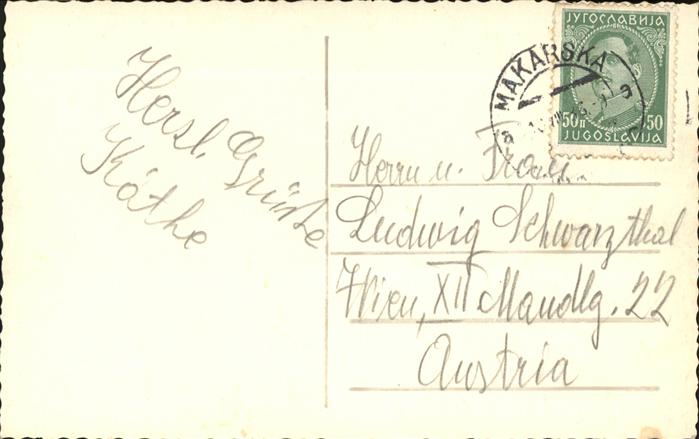 Herzl. Grüße
Käthe
ЈУГОСЛАВИЈА
50 П 50
JUGOSLAVIJA
MAKARSKA
Herrn u. Frau
Ludwig Schwarzthal
Wien, XII Mandlg. 22
Austria